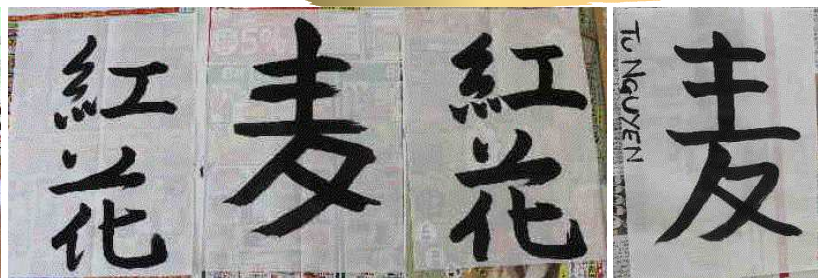 紅花
麦
紅花
TU NGUYEN
麦